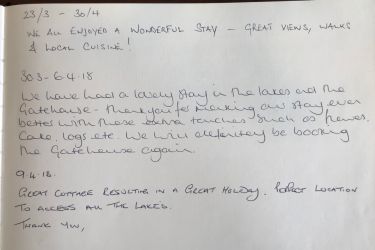 23/3 - 30/4
WE ALL ENJOYED A WONDERFUL STAY - GREAT VIEWS, WALKS
& LOCAL CUISINE!
30 3 - 6.4.18
We have had a lovely stay in the lakes and the
Gatehouse - thank you for making our stay even
better with those extra touches such as flowers,
Cake, logs etc. We will definitely be booking
the Gatehouse again.
9.4.18.
GREAT COTTAGE RESULTING IN A GREAT HOLIDAY. PERFECT LOCATION
TO ACCESS ALL THE LAKES.
THANK YOU,